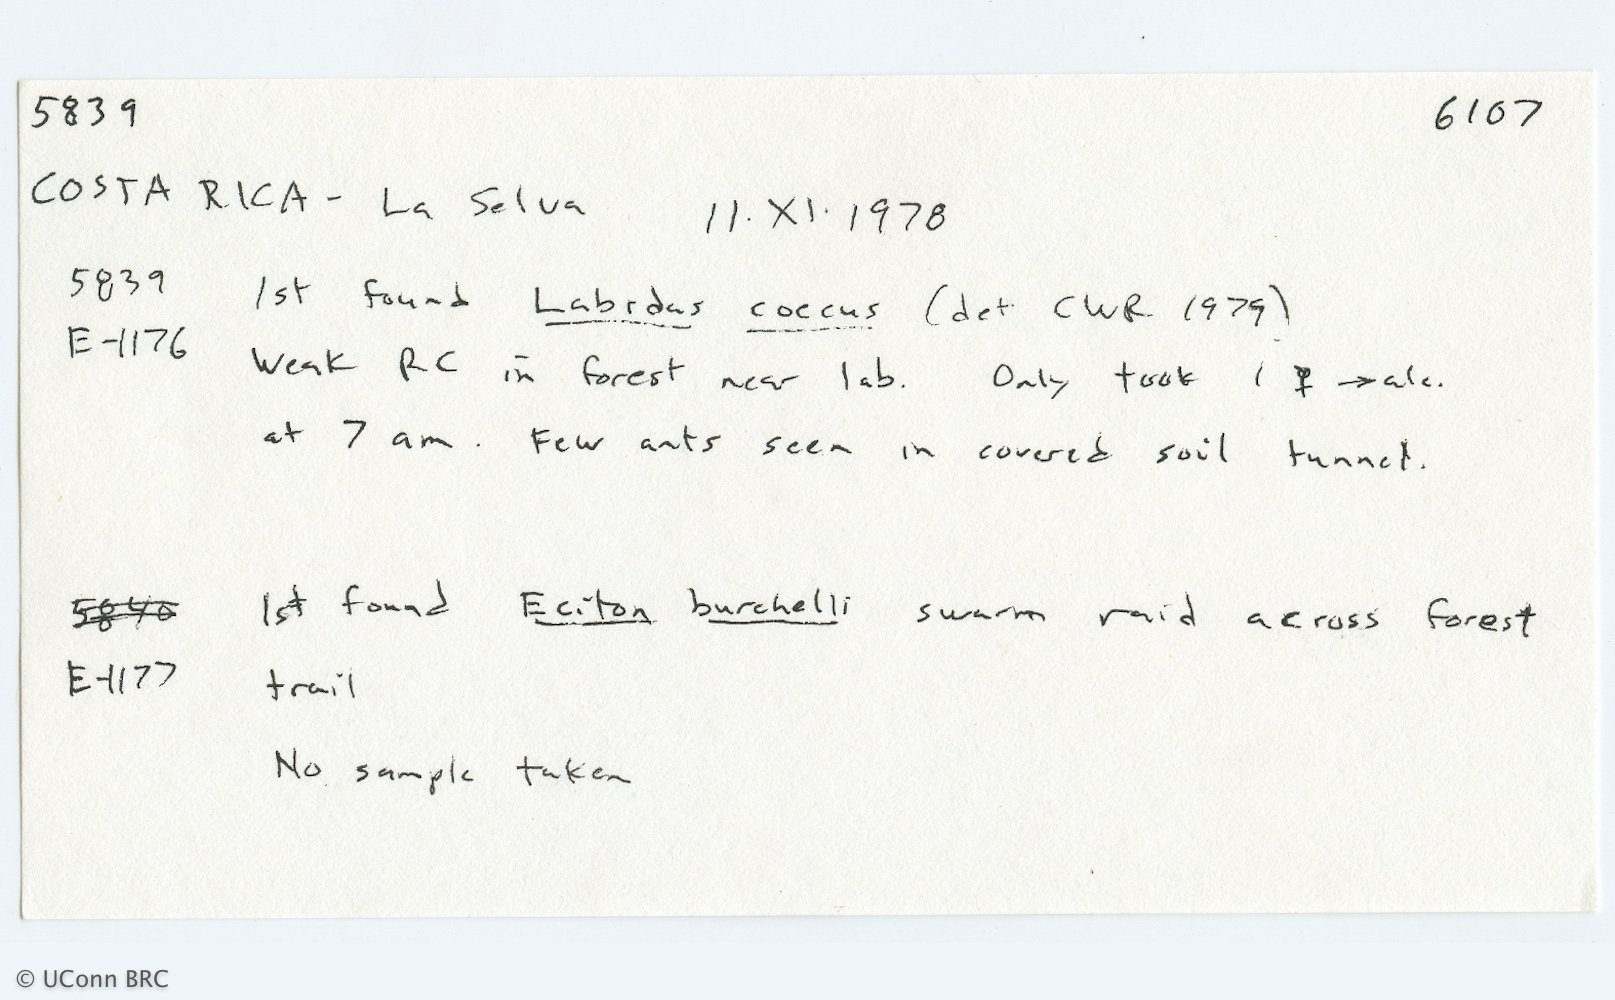 5839 6107
COSTA RICA - La Selva 11.XI.1978
5839 1st found Labidus coecus (det CWR 1979)
E-1176 Weak RC in forest near lab. Only took 1 ☿ → alc.
at 7 am. Few ants seen in covered soil tunnel.
5840 1st found Eciton burchelli swarm raid across forest
E-1177 trail
No sample taken
© UConn BRC